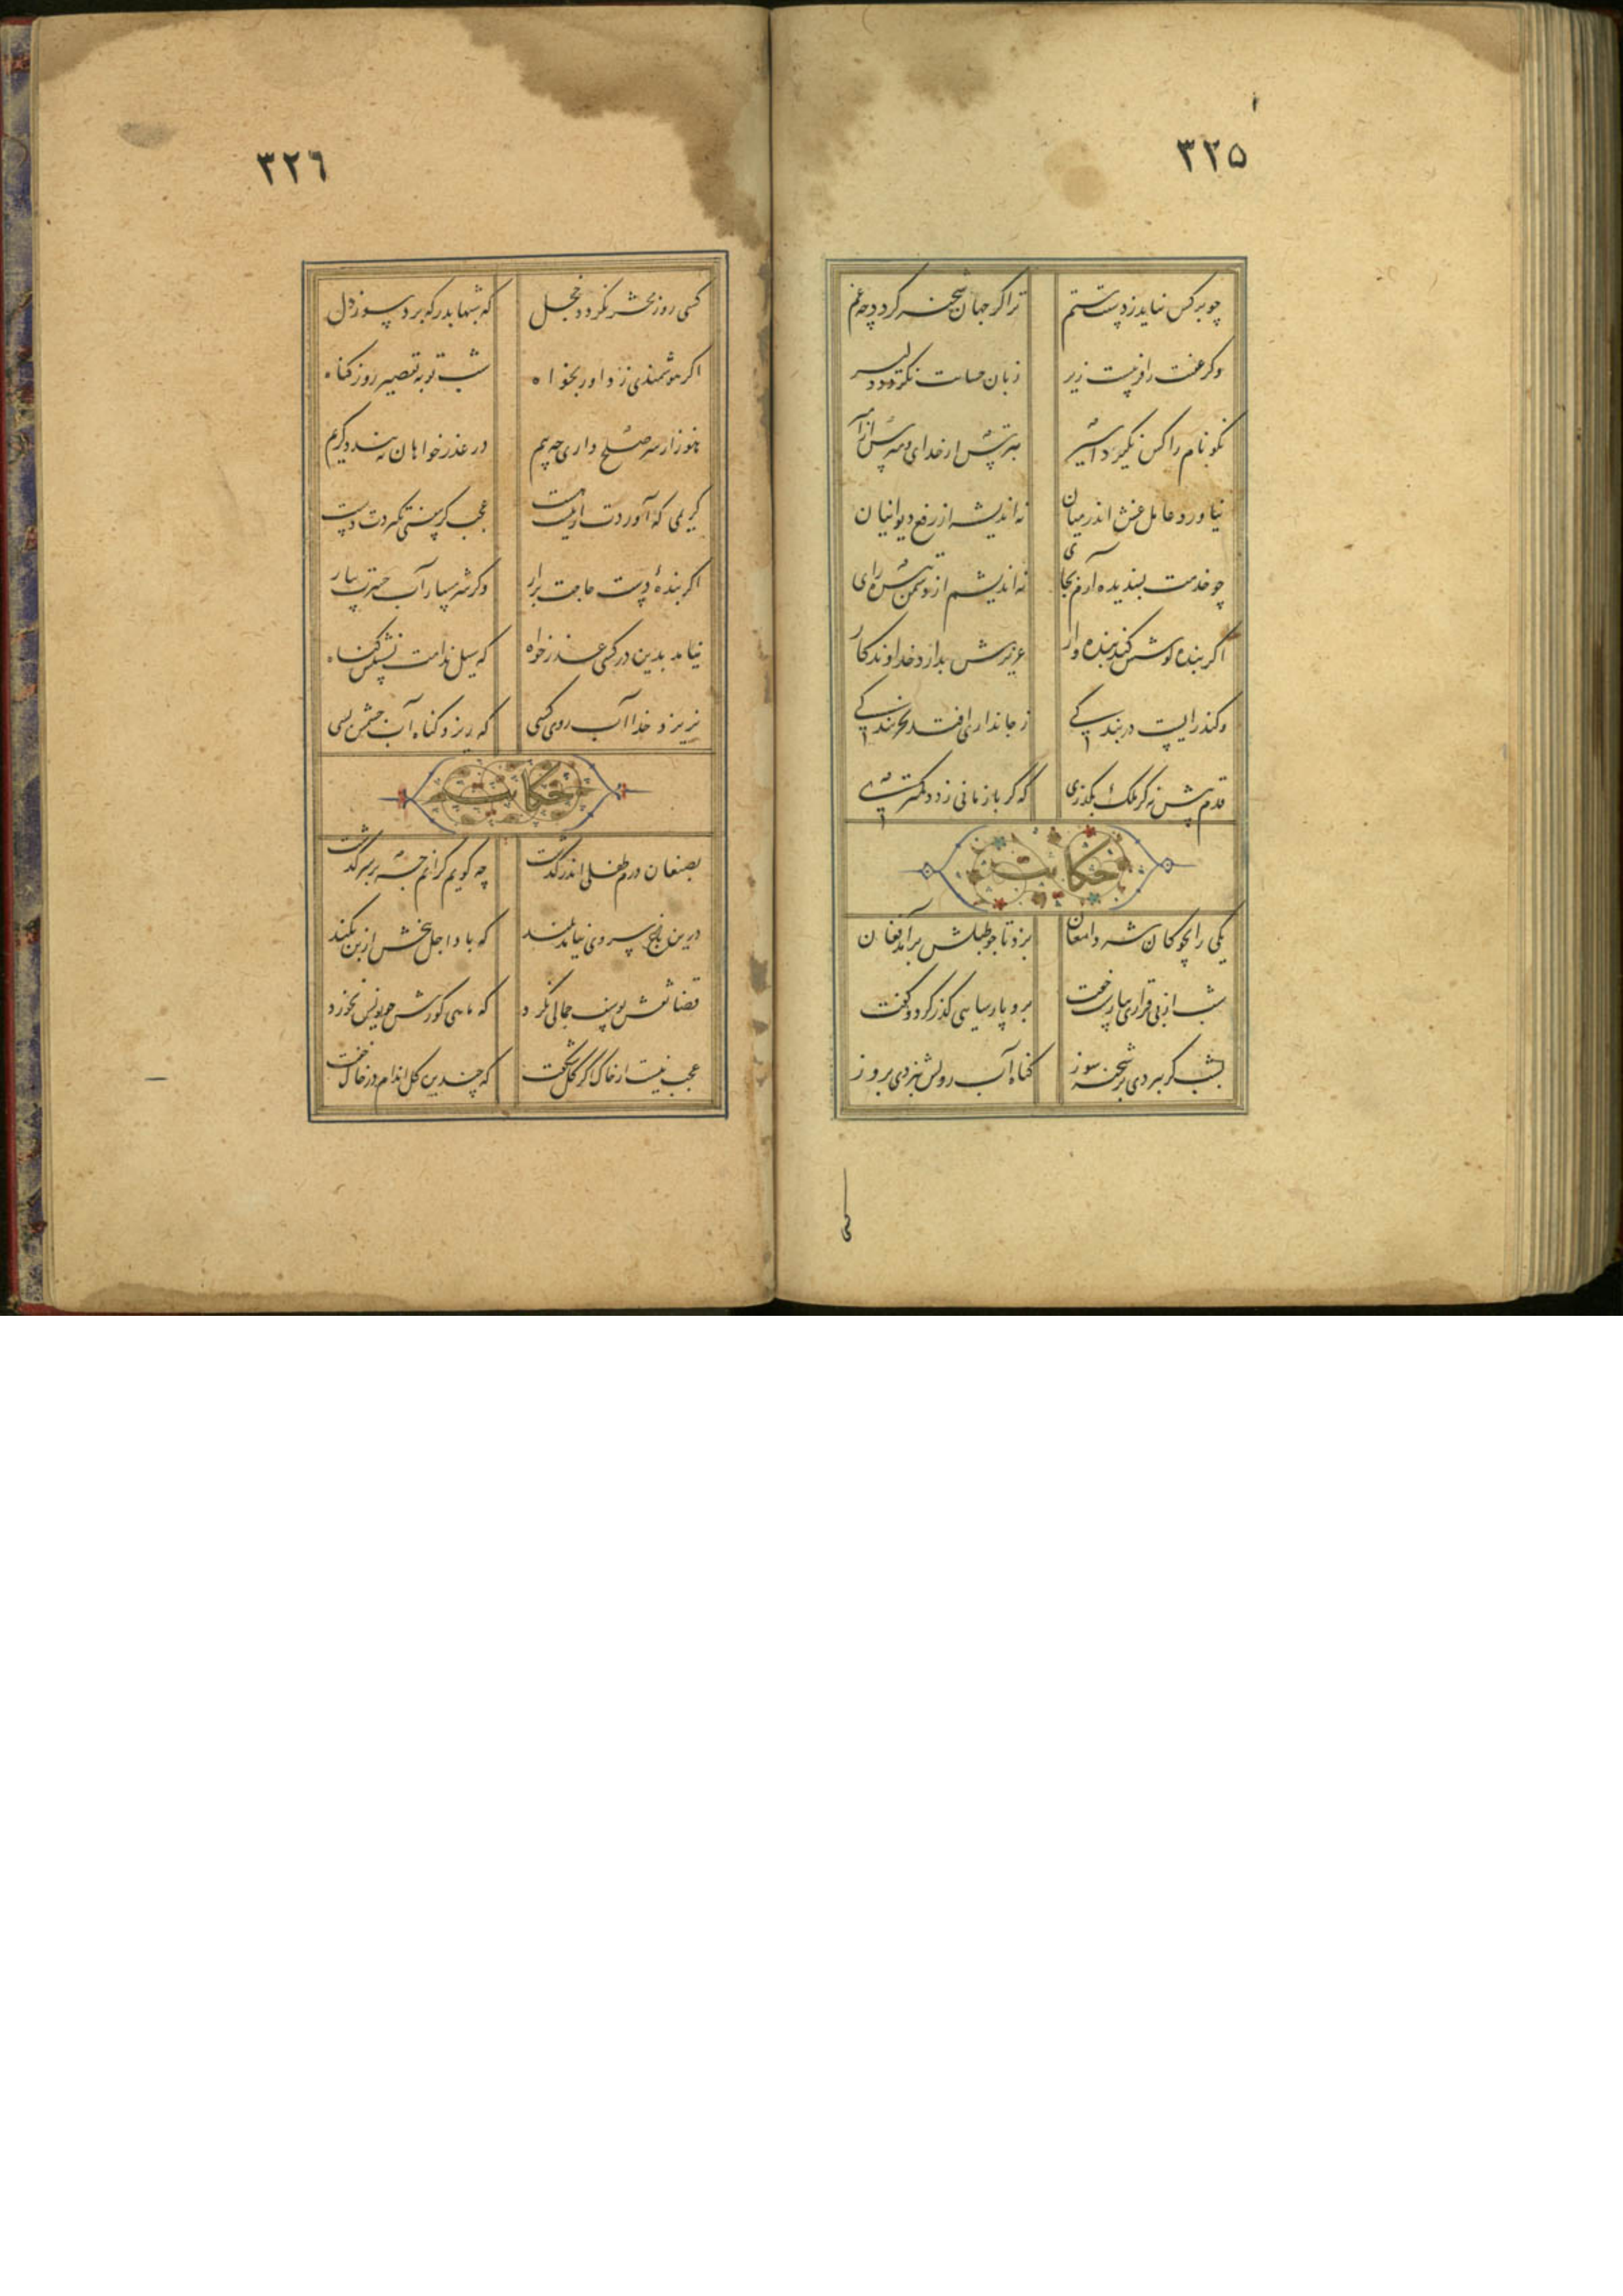 ٣٢٥
چو بر کس نیاید ز دستت ستم
ترا گر جهان شحنه گردد چه غم
وگر عفتت را فریبست زیر
زبان حسابت نگردد دلیر
نکو نام را کس نگیرد اسیر
بترس از خدای و مترس از امیر
نیاورد عامل غش اندر میان
نه اندیشه از رفع دیوانیان
چو خدمت پسندیده آرم بجای
نه اندیشم از دشمن تیره رای
اگر بنده کوشش کند بنده وار
عزیزش بدارد خداوندکار
وگر کند رایست در بندگی
ز جانداری افتد بخربندگی
قدم پیش نه کز ملک بگذری
که گر باز مانی ز دد کمتری
حکایت
یکی را بچوکان شه دامغان
بزد تا چو طبلش برآمد فغان
شب از بی قراری نیارست خفت
برو پارسایی گذر کرد و گفت
بشب گر ببردی بر شحنه سوز
گناه آب رویش نبردی بروز
کسی
٣٢٦
کسی روز محشر نگردد خجل
که شبها بدرگه برد سوز دل
اگر هوشمندی ز داور بخواه
شب توبه تقصیر روز گناه
هنوز ار سر صلح داری چه بیم
در عذرخواهان نبندد کریم
کریمی که آوردت از نیست هست
عجب گر بیفتی نگیردت دست
اگر بندهٔ دست حاجت برار
وگر شرمسار آب حسرت ببار
نیامد بدین در کسی عذرخواه
که سیل ندامت نشستش گناه
نریزد خدا آب روی کسی
که ریزد گناه آب چشمش بسی
حکایت
بصنعان درم طفلی اندر گذشت
چه گویم کزانم چه بر سر گذشت
درین باغ سروی نیامد بلند
که باد اجل بیخش از بن نکند
قضا نقش یوسف جمالی نکرد
که ماهی گورش چو یونس نخورد
عجب نیست از خاک اگر گل شکفت
که چندین گل اندام در خاک خفت